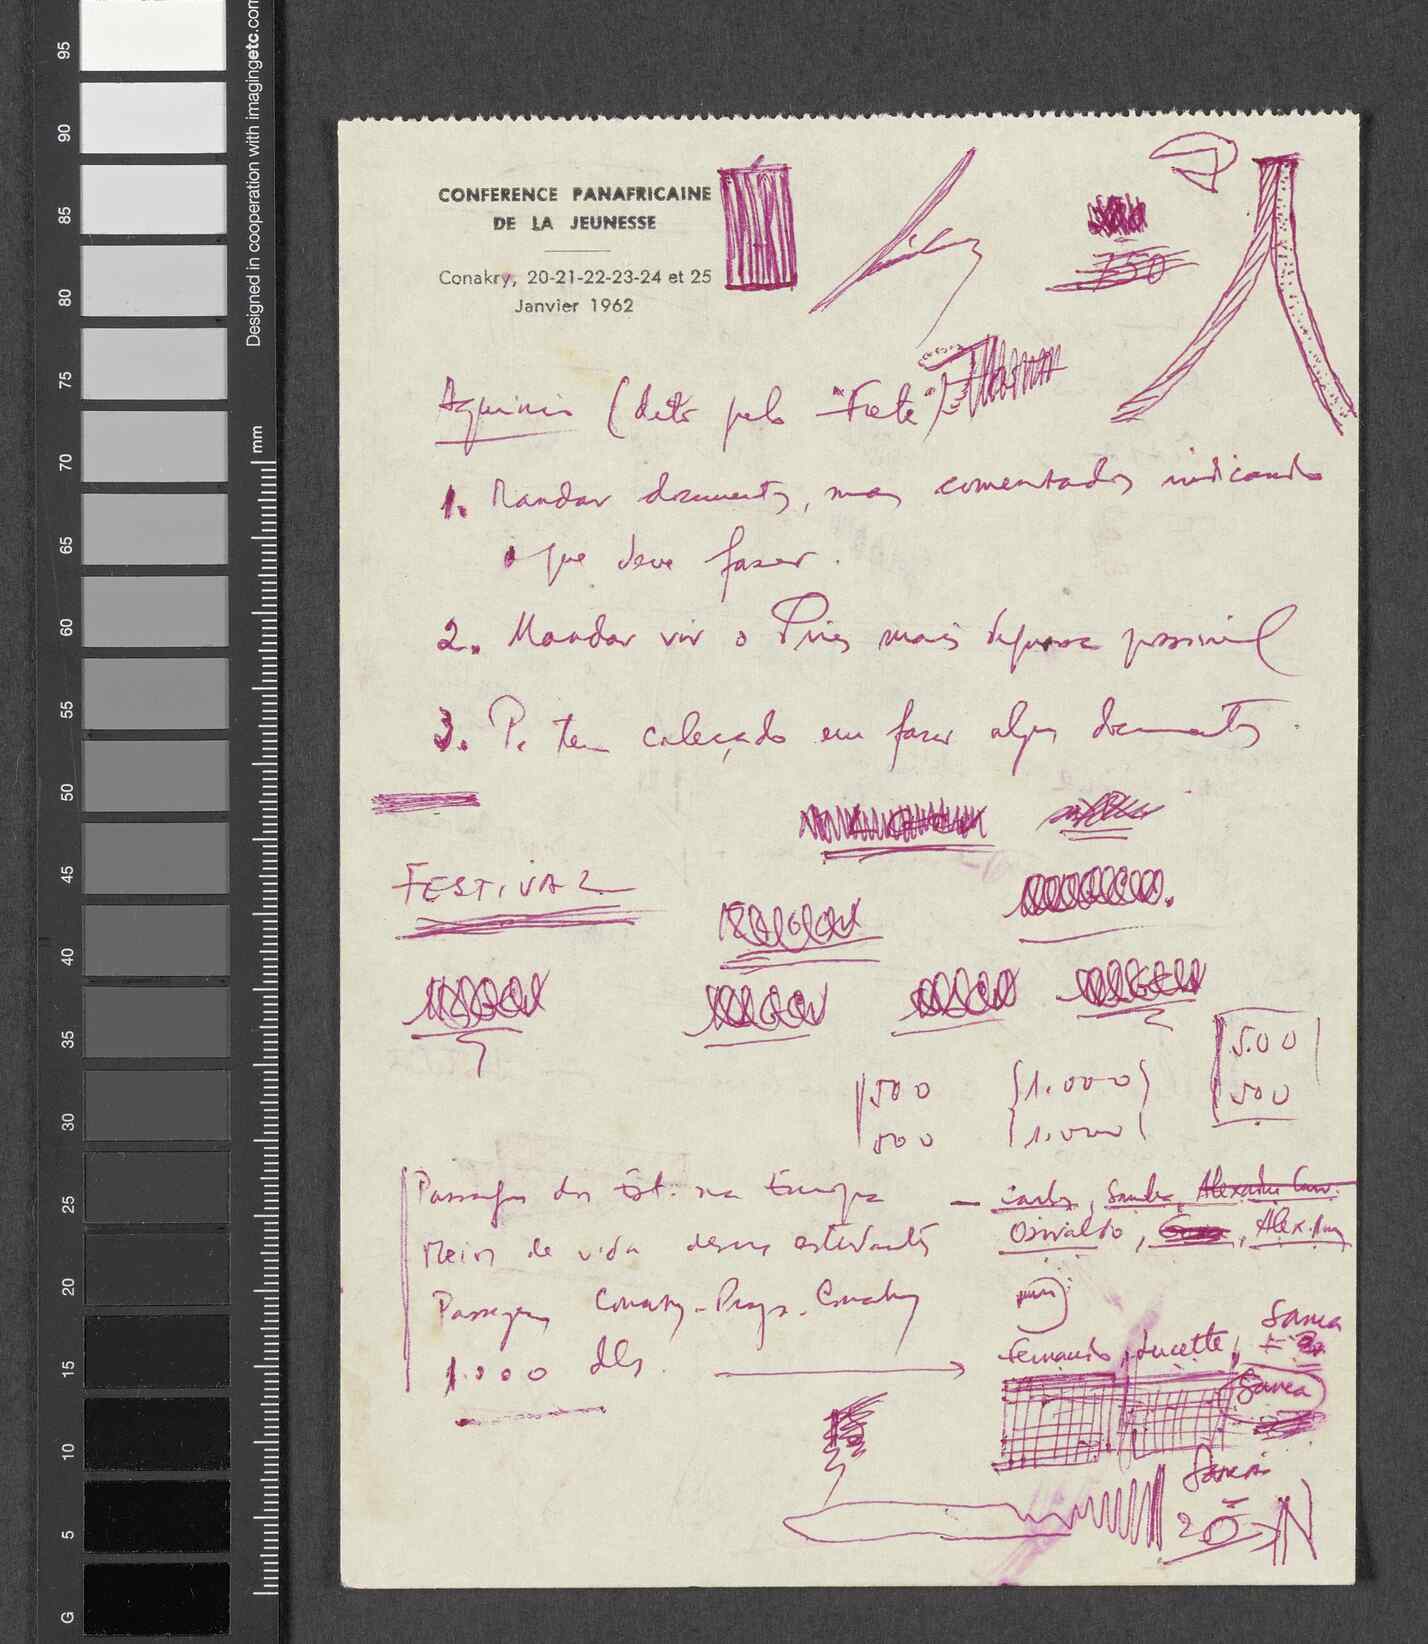 CONFERENCE PANAFRICAINE
DE LA JEUNESSE
Conakry, 20-21-22-23-24 et 25
Janvier 1962
750
(dito pelo "Fete")
1. Mandar documentos, mas comentados indicando
o que deve fazer.
2. Mandar vir o Pires mais depressa possivel
3. P. tem colecçado em fazer alguns documentos.
FESTIVAL
500
500
500 {1.000}
500 {1.000}
Passagens dos Est. na Europa — Carlos, Sandra,
Meios de vida desses estudantes Osvaldo, Alex.
Passagens Conakry-Praga-Conakry
1.000 dls. Fernando, Lucette, Sanca
Sanca
Sanca
20 N
95
90
85
80
75
70
65
60
55
50
45
40
35
30
25
20
15
10
5
G
mm
Designed in cooperation with imagingetc.com